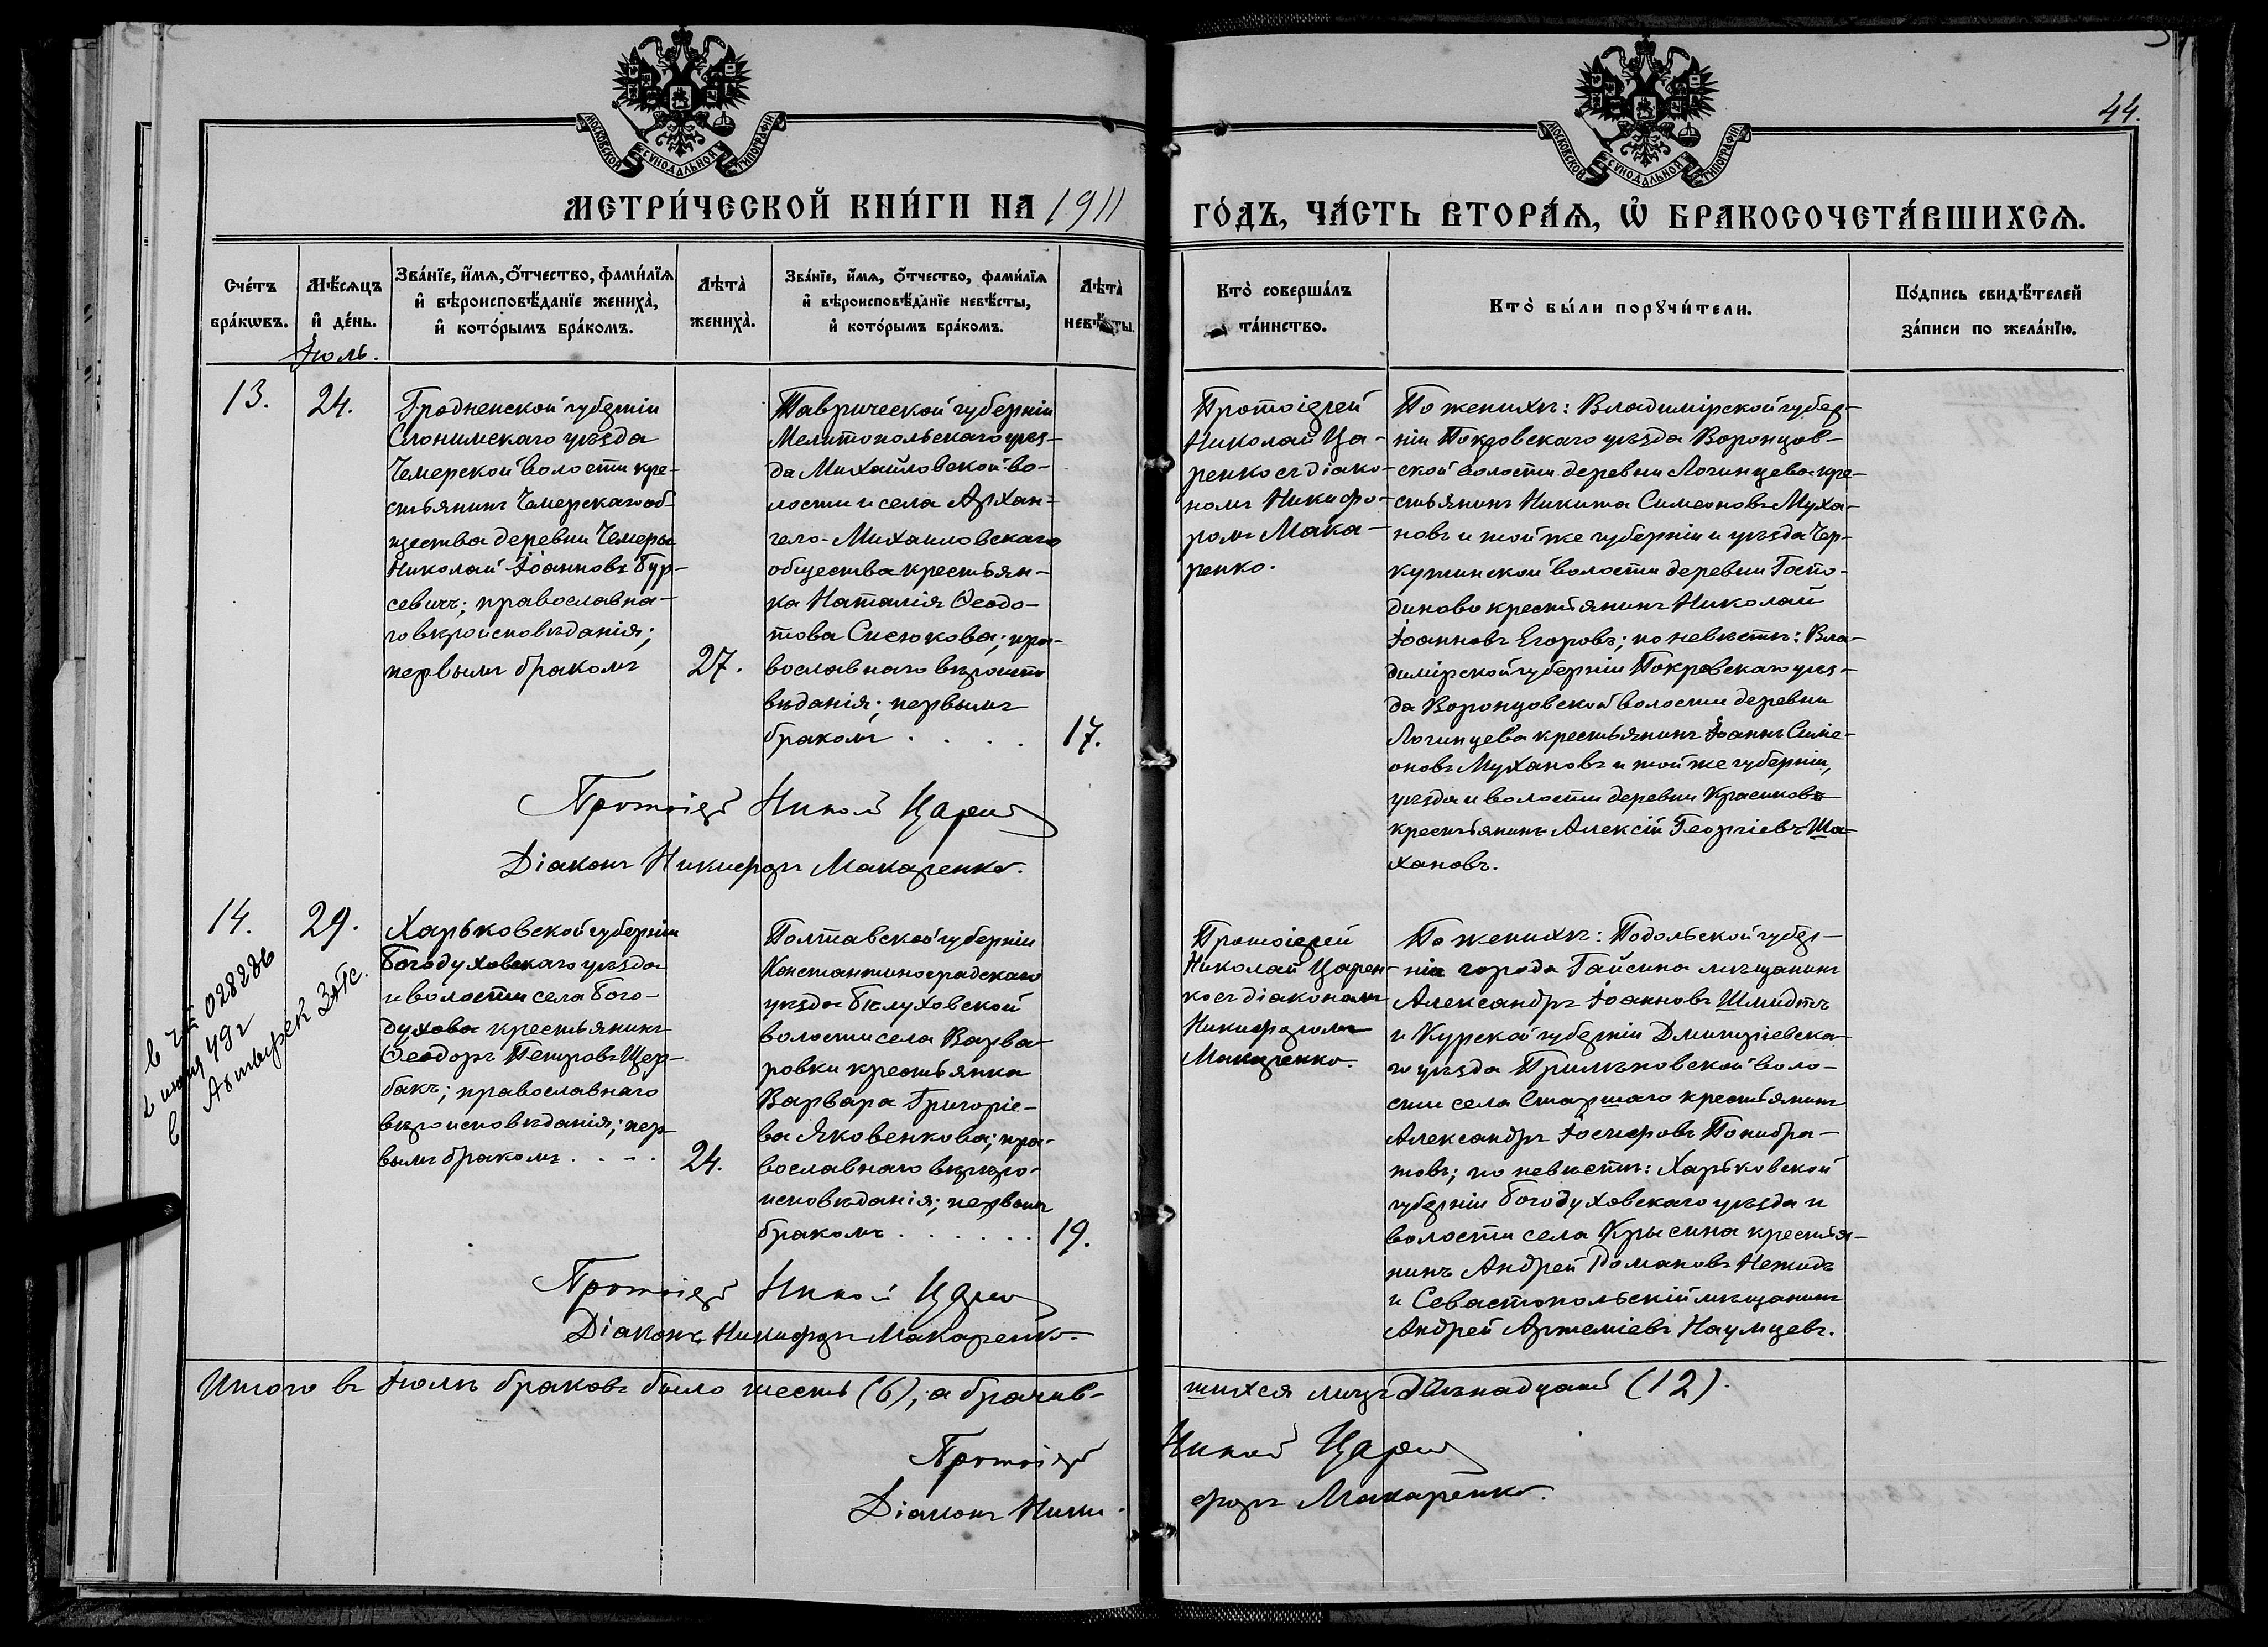 44.
МОСКОВСКОЙ СѴНОДАЛЬНОЙ ТИПОГРАФІИ
МОСКОВСКОЙ СѴНОДАЛЬНОЙ ТИПОГРАФІИ
МЕТРИ́ЧЕСКОЙ КНИ́ГИ НА 1911
ГО́ДЪ, ЧА́СТЬ ВТОРА́Ѧ, Ѽ БРАКОСОЧЕТА́ВШИХСѦ.
Сче́тъ
бра́кѡвъ.
Мѣ́сѧцъ
и҆ де́нь.
Іюль.
Зва́нїе, и҆́мѧ, ѻ҆́тчество, фами́лїѧ
и҆ вѣроисповѣ́данїе жениха̀,
и҆ кото́рымъ бра́комъ.
Лѣта̀
жениха̀.
Зва́нїе, и҆́мѧ, ѻ҆́тчество, фами́лїѧ
и҆ вѣроисповѣ́данїе невѣ́сты,
и҆ кото́рымъ бра́комъ.
Лѣта̀
невѣ́сты.
Кто̀ соверша́лъ
та́инство.
Кто̀ бы́ли порꙋчи́тели.
По́дпись свидѣ́телей
за́писи по жела́нїю.
13.
24.
Гродненской губерніи
Слонимскаго уѣзда
Чемерской волости кре-
стьянинъ Чемерскаго об-
щества деревни Чемеры
Николай Іоанновъ Бур-
севичъ; православна-
го вѣроисповѣданія;
первымъ бракомъ
27.
Таврической губерніи
Мелитопольскаго уѣз-
да Михайловской во-
лости и села Архан-
гело-Михаиловскаго
общества крестьян-
ка Наталія Ѳеодо-
това Сисюкова; пра-
вославнаго вѣроиспо
вѣданія; первымъ
бракомъ . . . .
17.
Протоіерей
Николай Ца-
ренко съ діако-
номъ Никифо-
ромъ Мака-
ренко.
По женихѣ: Владимірской губер-
ніи Покровскаго уѣзда Воронцов-
ской волости деревни Логинцева кре-
стьянинъ Никита Симеоновъ Муха-
новъ и той же губерніи и уѣзда Чер-
кутинской волости деревни Госпо-
диново крестьянинъ Николай
Іоанновъ Егоровъ; по невѣстѣ: Вла-
димірской губерніи Покровскаго уѣз-
да Воронцовской волости деревни
Логинцева крестьянинъ Іоаннъ Симе-
оновъ Мухановъ и той же губерніи,
уѣзда и волости деревни Красиково
крестьянинъ Алексій Георгіевъ Ша-
хановъ.
Протоіерей Николай Царенко
Діаконъ Никифоръ Макаренко.
14.
29.
028286
2 июня 49г
Харьковской губерніи
Богодуховскаго уѣзда
и волости села Бого-
духова крестьянинъ
Ѳеодоръ Петровъ Щер-
бакъ; православнаго
вѣроисповѣданія; пер-
вымъ бракомъ . . - .
24.
Полтавской губерніи
Константиноградскаго
уѣзда Бѣлуховской
волости села Варва-
ровки крестьянка
Варвара Григоріе-
ва Яковенкова; пра-
вославнаго вѣрро-
исповѣданія; первымъ
бракомъ . . . . . .
19.
Протоіерей
Николай Царен-
ко съ діакономъ
Никифоромъ
Макаренко.
По женихѣ: Подольской губер-
ніи города Гайсина мѣщанинъ
Александръ Іоанновъ Шмидтъ
и Курской губерніи Дмитріевска-
го уѣзда Прилѣповской воло-
сти села Старшаго крестьянинъ
Александръ Іосифовъ Понибра-
товъ; по невѣстѣ: Харьковской
губерніи Богодуховскаго уѣзда и
волости села Крысина крестья-
нинъ Андрей Романовъ Нежидъ
и Севастопольскій мѣщанинъ
Андрей Артеміевъ Наумцевъ.
Протоіерей Николай Царенко
Діаконъ Никифоръ Макаренко.
Итого въ Іюлѣ браковъ было шесть (6); а брачив-
шихся лицъ двѣнадцать (12).
Протоіерей Николай Царенко
Діаконъ Ники-
форъ Макаренко.